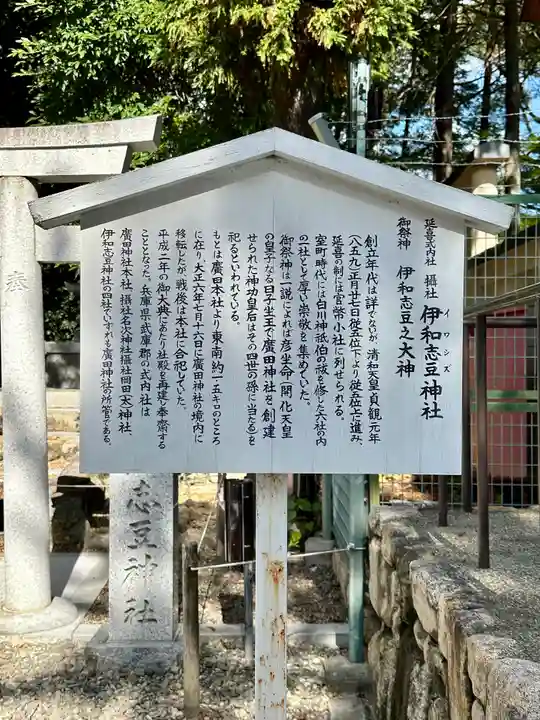 延喜式内社 摂社 伊和志豆神社
イワシズ
御祭神 伊和志豆之大神
創立年代は詳でないが、清和天皇貞観元年
(八五九)正月廿七日従五位下より従五位上に進み、
延喜の制には官幣小社に列せられる。
室町時代には白川神祇伯の祓を修した六社の内
の一社として厚い崇敬を集めていた。
御祭神は一説によれば彦坐命(開化天皇
の皇子なる日子坐王で廣田神社を創建
せられた神功皇后はその四世の孫に当たる)を
祀るといわれている。
もとは廣田本社より東南約一・五キロのところ
に在り、大正六年七月十六日に廣田神社の境内に
移転したが、戦後は本社に合祀していた。
平成二年の御大典にあたり社殿を再建し奉斎する
こととなった。兵庫県武庫郡の式内社は
廣田神社本社、摂社名次神社、摂社岡田(太)神社、
伊和志豆神社の四社でいずれも廣田神社の所管である。
奉
志豆神社